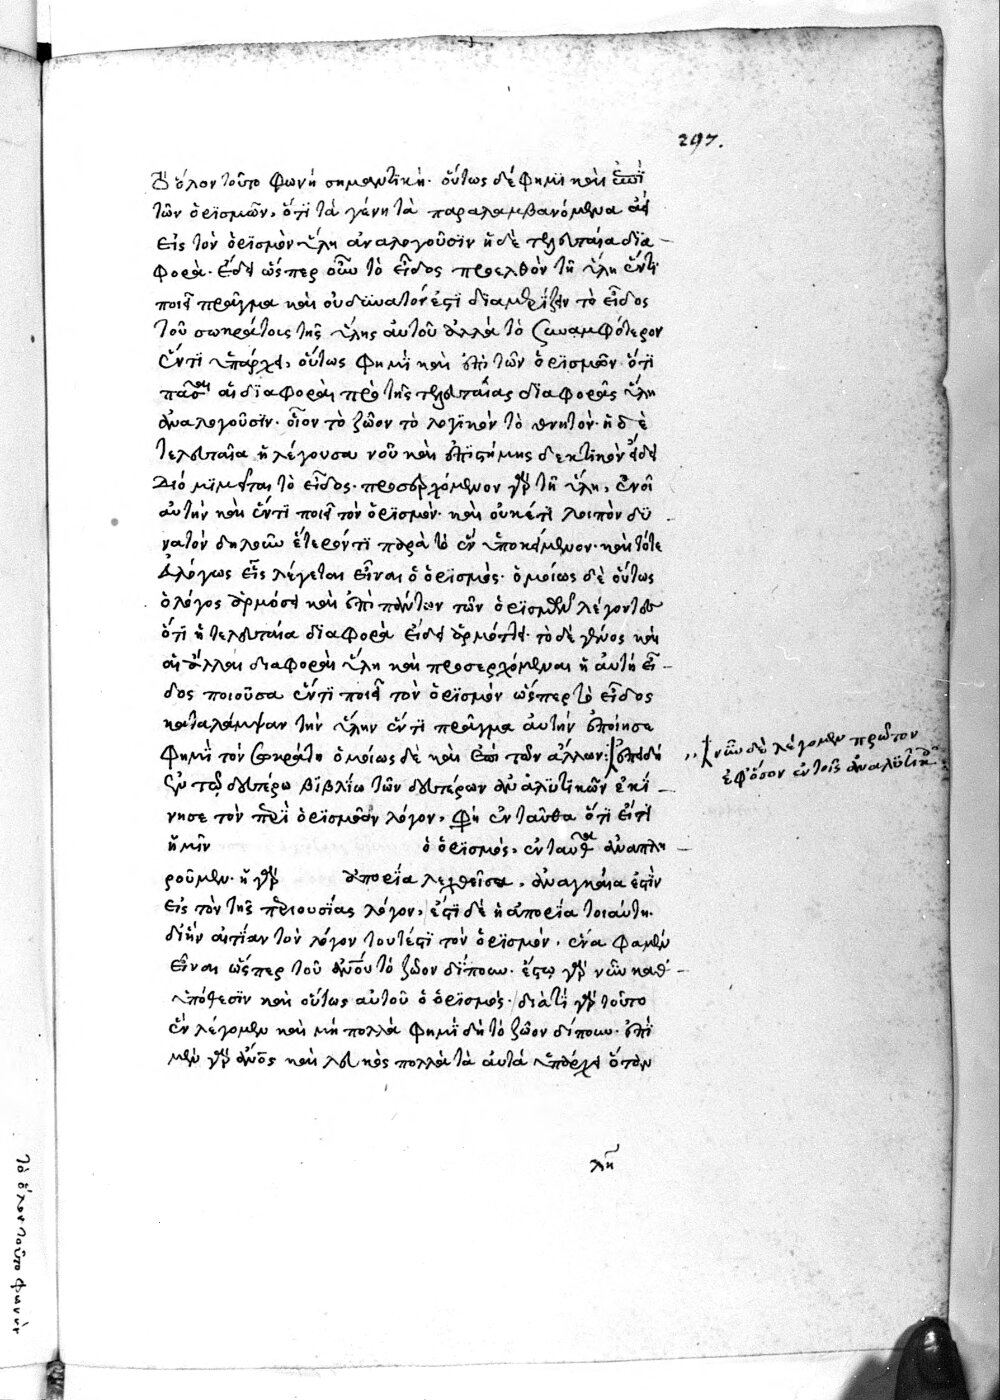 297.
τὸ ὅλον τοῦτο φωνὴ σημαντικὴ· οὕτως δέ φημι καὶ ἐπὶ
τῶν ὁρισμῶν, ὅτι τὰ γένη τὰ παραλαμβανόμενα
εἰς τὸν ὁρισμὸν ὕλη ἀναλογοῦσιν ἡ δὲ τελευταία δια
φορὰ εἴδει ὥσπερ οὖν τὸ εἶδος προελθὸν τῆ ὕλη ἕν τι
ποιεῖ πρᾶγμα καὶ οὐ δυνατόν ἐστι διαμερίζειν τὸ εἶδος
τοῦ σωκράτους τῆς ὕλης αὐτοῦ ἀλλὰ τὸ συναμφότερον
ἕν τι ὑπάρχει, οὕτως φημὶ καὶ ἐπὶ τῶν ὁρισμῶν ὅτι
πᾶσαι αἱ διαφοραὶ πρὸ τῆς τελευταίας διαφορᾶς ὕλη
ἀναλογοῦσιν· οἷον τὸ ζῶον τὸ λογικὸν τὸ θνητὸν· ἡ δὲ
τελευταία ἡ λέγουσα νοῦ καὶ ἐπιστήμης δεκτικὸν εἴδει
διὸ μιμεῖται τὸ εἶδος· προσερχόμενον γὰρ τῆ ὕλη, ἑνοῖ
αὐτὴν καὶ ἕν τι ποιεῖ τὸν ὁρισμόν· καὶ οὐκέτι λοιπὸν δυ
νατὸν δηλοῦν ἕτερόν τι παρὰ τὸ ἓν ὑποκείμενον· καὶ τότε
εἷς λέγεται εἶναι ὁ ὁρισμὸς· ὁμοίως δὲ οὕτως
ὁ λόγος ἁρμόσει καὶ ἐπὶ πάντων τῶν ὁρισμῶν λέγοντος
ὅτι ἡ τελευταία διαφορὰ εἴδει ἁρμόττει· τὸ δὲ γένος καὶ
αἱ ἄλλαι διαφοραὶ ὕλη καὶ προσερχόμεναι ἡ αὐτὴ εἶ
δος ποιοῦσα ἕν τι ποιεῖ τὸν ὁρισμόν ὥσπερ τὸ εἶδος
καταλάμψαν τὴν ὕλην ἕν τι πρᾶγμα αὐτὴν ἐποίησε
φημὶ τὸν σωκράτη ὁμοίως δὲ καὶ ἐπὶ τῶν ἄλλων· ἐπειδὴ
ἐν τῶ δευτέρω βιβλίω τῶν δευτέρων ἀναλυτικῶν ἐκί
νησε τὸν περὶ ὁρισμοῦ λόγον, φησὶ ἐνταῦθα ὅτι εἴ τι
ἡμῖν ὁ ὁρισμὸς, ἐνταῦθα ἀναπλη
ροῦμεν· ἡ γὰρ ἀπορία λεχθεῖσα, ἀναγκαία ἐστὶν
εἰς τὸν τῆς περὶ οὐσίας λόγον, ἔστι δὲ ἡ ἀπορία τοιαύτη·
δι' ἣν αἰτίαν τὸν λόγον τουτέστι τὸν ὁρισμόν, ἕνα φαμὲν
εἶναι ὥσπερ τοῦ ἀνθρώπου τὸ ζῶον δίπουν· ἔστω γὰρ νῦν καθ'
ὑπόθεσιν καὶ οὕτως αὐτοῦ ὁ ὁρισμὸς· διὰ τί γὰρ τοῦτο
ἓν λέγομεν καὶ μὴ πολλὰ φημὶ δὴ τὸ ζῶον δίπουν· ἐπὶ
μὲν γὰρ ἄνθρωπος καὶ λευκὸς πολλὰ τὰ αὐτὰ ὑπάρχει ὅταν
νῦν δὲ λέγομεν πρῶτον
ἐφ' ὅσον ἐν τοῖς ἀναλυτικοῖς
λη
τὸ ὅλον τοῦτο φωνὴ